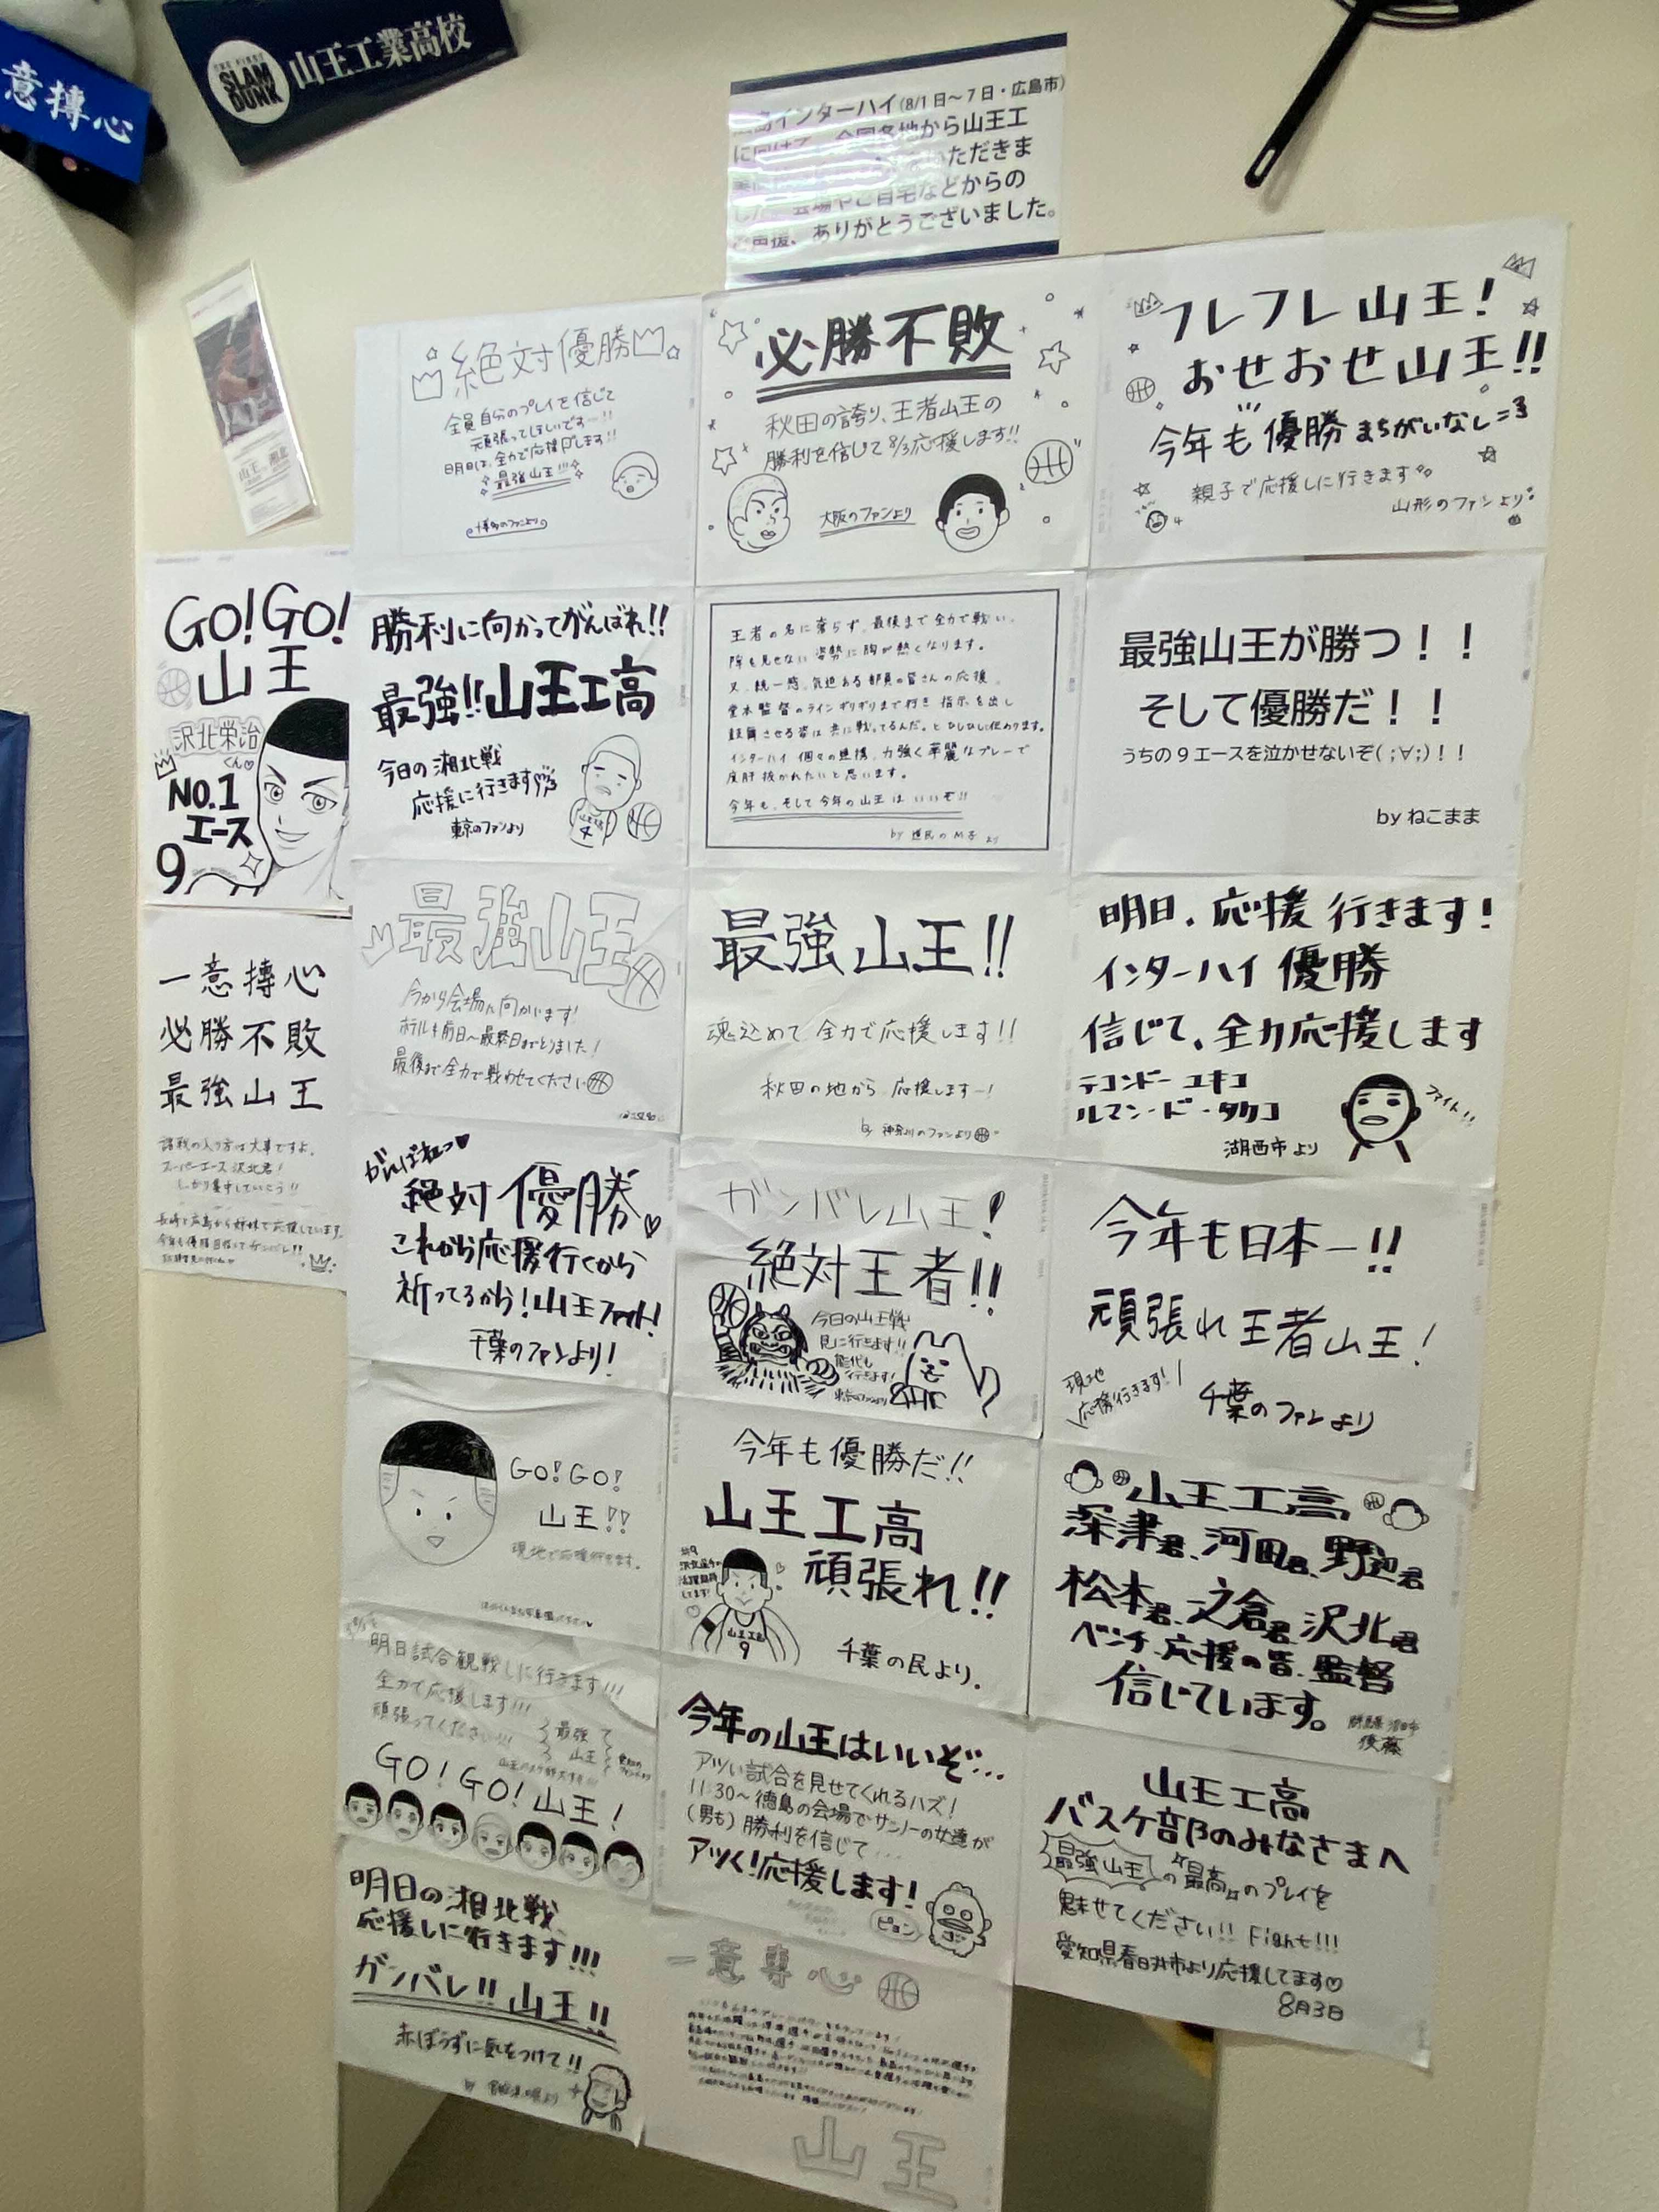 意摶心
SLAM
DUNK
山王工業高校
島インターハイ(8/1日～7日・広島市)
に向けて、全国各地から山王工
いただきま
会場やご自宅などからの
ご声援、ありがとうございました。
絶対優勝
全員自分のプレイを信じて
頑張ってほしいですー!!
明日は、全力で応援します!!
最強山王!!!
博多のファンより
必勝不敗
秋田の誇り、王者山王の
勝利を信じて8/3応援します!!
大阪のファンより
フレフレ山王!
おせおせ山王!!
今年も優勝まちがいなし
親子で応援しに行きます
山形のファンより
GO!GO!
山王
沢北栄治
くん
NO.1
エース
9
勝利に向かってがんばれ!!
最強!!山王工高
今日の湘北戦
応援に行きます
東京のファンより
王者の名に奢らず、最後まで全力で戦い、
隙も見せない姿勢に胸が熱くなります。
又、統一感、気迫ある部員の皆さんの応援。
堂本監督のラインギリギリまで行き指示を出し
鼓舞させる姿は共に戦ってるんだ。とひしひし伝わります。
インターハイ 個々の連携、力強く華麗なプレーで
度肝抜かれたいと思います。
今年も、そして今年の山王はいいぞ!!
by 道民のM子より
最強山王が勝つ！！
そして優勝だ！！
うちの９エースを泣かせないぞ( ;∀;)！！
by ねこまま
一意摶心
必勝不敗
最強山王
諸戦の入り方は大事ですよ。
スーパーエース沢北君!
しっかり集中していこう!!
長崎と広島から姉妹で応援しています。
今年も優勝目指してガンバレ!!
最強山王
今から会場に向かいます!
ホテルも前日～最終日までとりました!
最後まで全力で戦わせてください
最強山王!!
魂込めて全力で応援します!!
秋田の地から、応援しますー!
by 神奈川のファンより
明日、応援行きます!
インターハイ優勝
信じて、全力応援します
テコンドー ユキコ
ルマンド・タカコ
湖西市より
ファイト!!
がんばねっつ♥
絶対優勝♡
これから応援行くから
祈ってるから!山王ファイト!
千葉のファンより!
ガンバレ山王!
絶対王者!!
今日の山王戦
見に行きます!!
能代も
行きます!
東京のファンより
今年も日本一!!
頑張れ王者山王!
現地
応援行きます!
千葉のファンより
GO!GO!
山王!!
現地で応援行きます。
今年も優勝だ!!
山王工高
頑張れ!!
山王工高
9
千葉の民より。
山王工高
深津君、河田君、野辺君
松本君、之倉君、沢北君
ベンチ、応援の皆、監督
信じています。
後藤
明日試合観戦しに行きます!!!
全力で応援します!!!
頑張ってください!!!
最強
山王
GO!GO!山王!
今年の山王はいいぞ…
アツい試合を見せてくれるハズ!
11:30～徳島の会場でサンノーの女達が
(男も)勝利を信じて…
アツく!応援します!
ピョン
山王工高
バスケ部のみなさまへ
最強山王の"最高"のプレイを
魅せてください!! Fight!!!
愛知県春日井市より応援してます♡
8月3日
明日の湘北戦
応援しに行きます!!!
ガンバレ!!山王!!
赤ぼうずに気をつけて!!
一意専心
山王